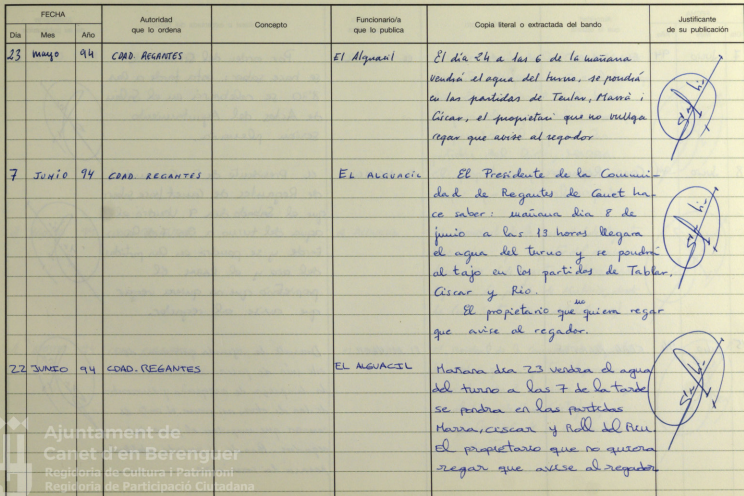 FECHA
Día Mes Año
Autoridad
que lo ordena
Concepto
Funcionario/a
que lo publica
Copia literal o extractada del bando
Justificante
de su publicación
23 mayo 94 CDAD. REGANTES El Alguacil
El día 24 a las 6 de la mañana
vendrá el agua del turno, se pondrá
en las partidas de Teular, Marrà i
Ciscar, el propietari que no vullga
regar que avise al regador
7 JUNIO 94 CDAD. REGANTES EL ALGUACIL
El Presidente de la Comuni-
dad de Regantes de Canet ha-
ce saber: mañana dia 8 de
junio a las 13 horas llegara
el agua del turno y se pondrá
al tajo en las partidos de Tablar,
Ciscar y Rio.
El propietario que no quiera regar
que avise al regador.
22 JUNIO 94 CDAD. REGANTES EL ALGUACIL
Mañana dia 23 vendra el agua
del turno a las 7 de la tarde
se pondra en las partidas
Marra, ciscar y Roll del
El propietario que no quiera
regar que avise al regador
Ajuntament de
Canet d'en Berenguer
Regidoria de Cultura i Patrimoni
Regidoria de Participació Ciutadana